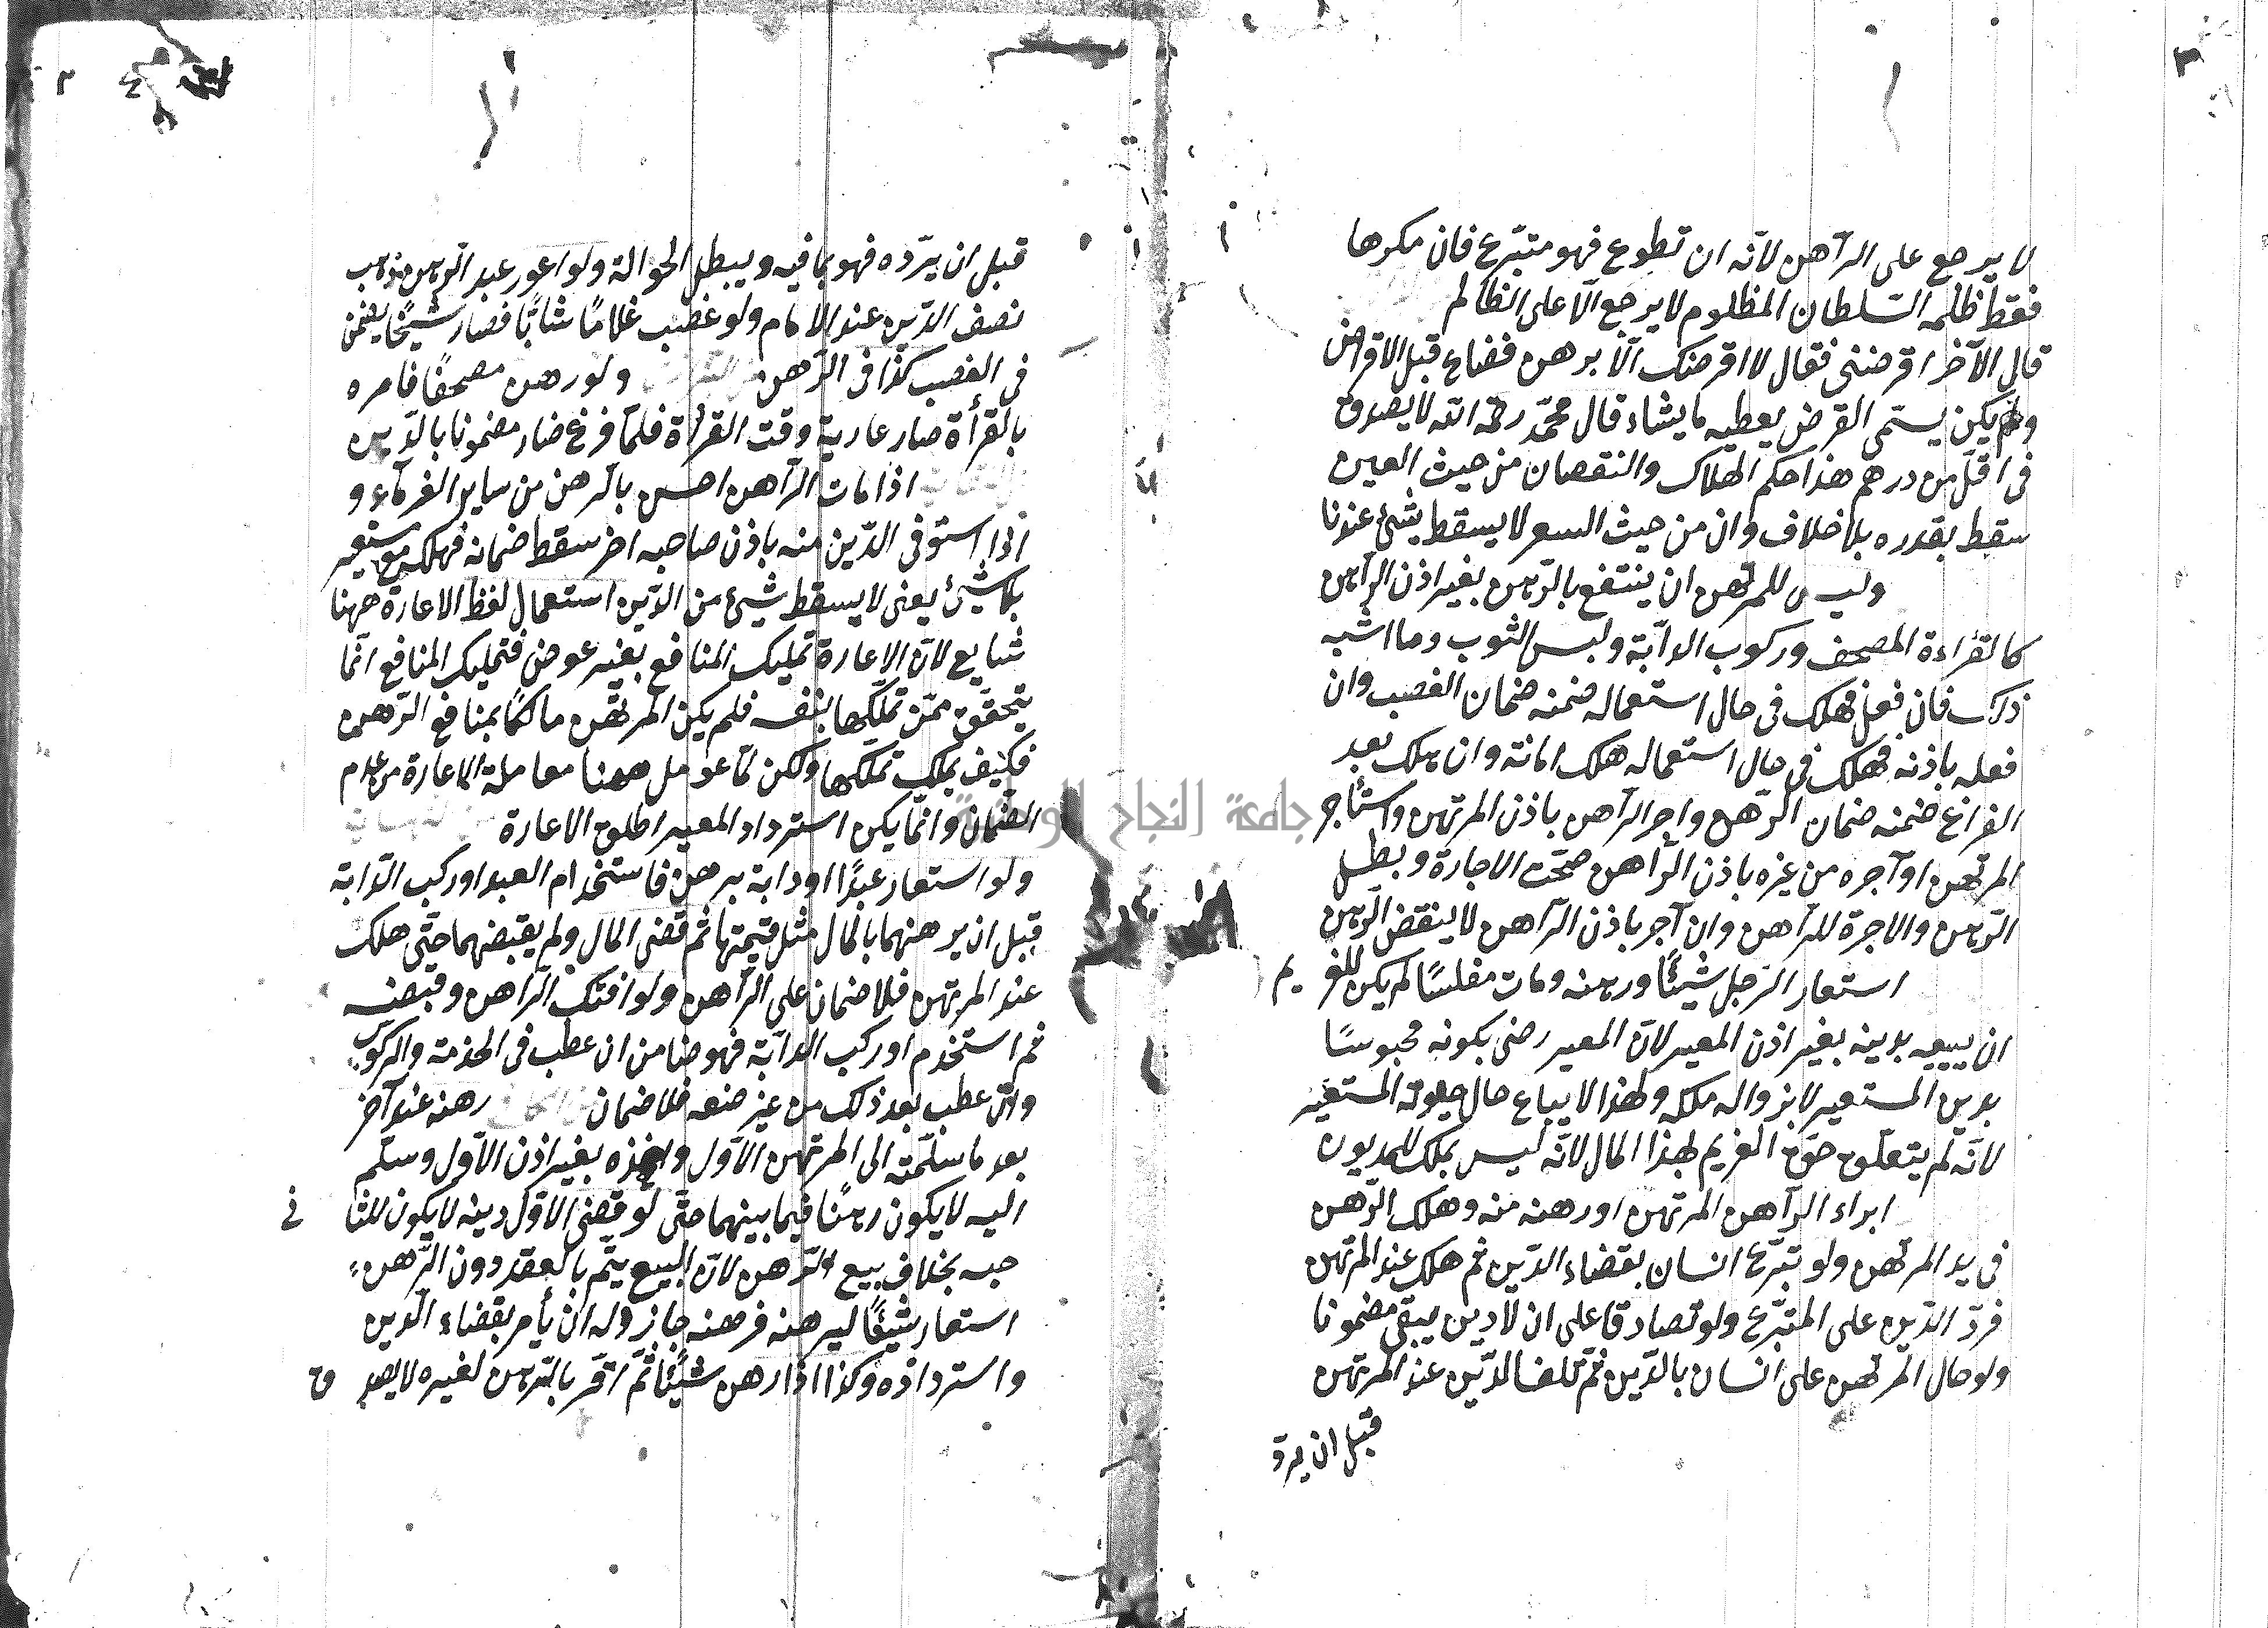 لا يرجع على الرآهن لانّه ان تطوع فهو متبرّع فان مكرها
فقط ظلمه السّلطان المظلوم لا يرجع الّا على الظالم
قال الآخر اقرضنى فقال لا اقرضك الّا برهن فضاع قبل الاقراض
ولم يكن يسمّى القرض يعطيه ما يشاء قال محمّد رحمه الله لا يصدق
فى اقلّ من درهم هذا حكم الهلاك والنقصان من حيث العين
سقط بقدره بلا خلاف وان من حيث السعر لا يسقط بشئ عندنا
وليس للمرتهن ان ينتفع بالرّهن بغير اذن الرآهن
كالقراءة المصحف وركوب الدآبّة ولبس الثوب وما اشبه
ذلك فان فعل فهلك فى حال استعماله ضمنه ضمان الغصب وان
فعله باذنه فهلك فى حال استعماله هلك امانة وان هلك بعد
الفراغ ضمنه ضمان الرّهن واجر الرآهن باذن المرتهن واستأجر
المرتهن او آجره من غيره باذن الرآهن صحّت الاجارة وبطل
الرّهن والاجرة للرآهن وان آجر باذن الرآهن لا ينقض الرّهن
استعار الرّجل شيئًا ورهنه ومات مفلسًا لم يكن للغريم
ان يبيعه بدينه بغير اذن المعير لانّ المعير رضى بكونه محبوسًا
بدين المستعير لا بزواله ملكه ولهذا لا يباع حال حيوته المستعير
لانّه لم يتعلّق حقّ الغريم لهذا المال لانّه ليس بملك للمديون
ابراء الرآهن المرتهن او رهنه منه وهلك الرّهن
فى يد المرتهن ولو تبرّع انسان بقضاء الدّين ثم هلك عند المرتهن
فردّ الدّين على المتبرّع ولو تصادقا على ان لا دين يبقى مضمونا
ولو حال المرتهن على انسان بالدّين ثمّ تلف الدّين عند المرتهن
قبل ان يردّ
قبل ان يردّه فهو بما فيه ويبطل الحوالة ولو اعور عبد الرّهن ذهب
نصف الدّين عند الامام ولو غصب غلامًا شابًّا فصار شيخًا يضمن
فى الغصب كذا فى الرّهن ولو رهن مصحفًا فامره
بالقرأة صار عارية وقت القرأة فلمّا فرغ صار مضمونا بالدّين
اذا مات الرآهن احسن بالرهن من ساير الغرماء و
اذا استوفى الدّين منه باذن صاحبه اخر سقط ضمانه فهلك مع مستعير
بلا شئ يعنى لا يسقط شئ من الدّين استعمال لفظ الاعارة ههنا
شايع لانّ الاعارة تمليك المنافع بغير عوض فتمليك المنافع انّما
يتحقّق ممّن تملّكها بنفسه فلم يكن المرتهن مالكًا بمنافع الرّهن
فكيف يملك تملّكها ولكن لمّا عومل ههنا معاملة الاعارة من عدم
الضّمان وانّما يكن استرداد المعير اطلق الاعارة
ولو استعار عبدًا او دابة برهن فاستخدام العبد او ركب الدّابة
قبل ان يرهنهما بالمال مثل قيمتها ثم قضى المال ولم يقبضهما حتّى هلك
عند المرتهن فلا ضمان على الرآهن ولو افتكّ الرآهن وقبضه
ثم استخدم او ركب الدآبّة فهو ضامن ان عطب فى الخدمة والركوب
وان عطب بعد ذلك من غير صنعه فلا ضمان رهنه عند آخر
بعد ما سلّمته الى المرتهن الاوّل واخذه بغير اذن الاوّل وسلّم
اليه لا يكون رهنًا فيما بينهما حتّى لو قضى الاوّل دينه لا يكون للثانى
حبسه بخلاف بيع الرّهن لانّ البيع يتمّ بالعقد دون الرّهن
استعار شيئًا ليرهنه فرهنه جاز وله ان يأمر بقضاء الدين
واسترداده وكذا اذا رهن شيئًا ثمّ اقرّ بالرّهن لغيره لا يصدق
جامعة النجاح الوطنية